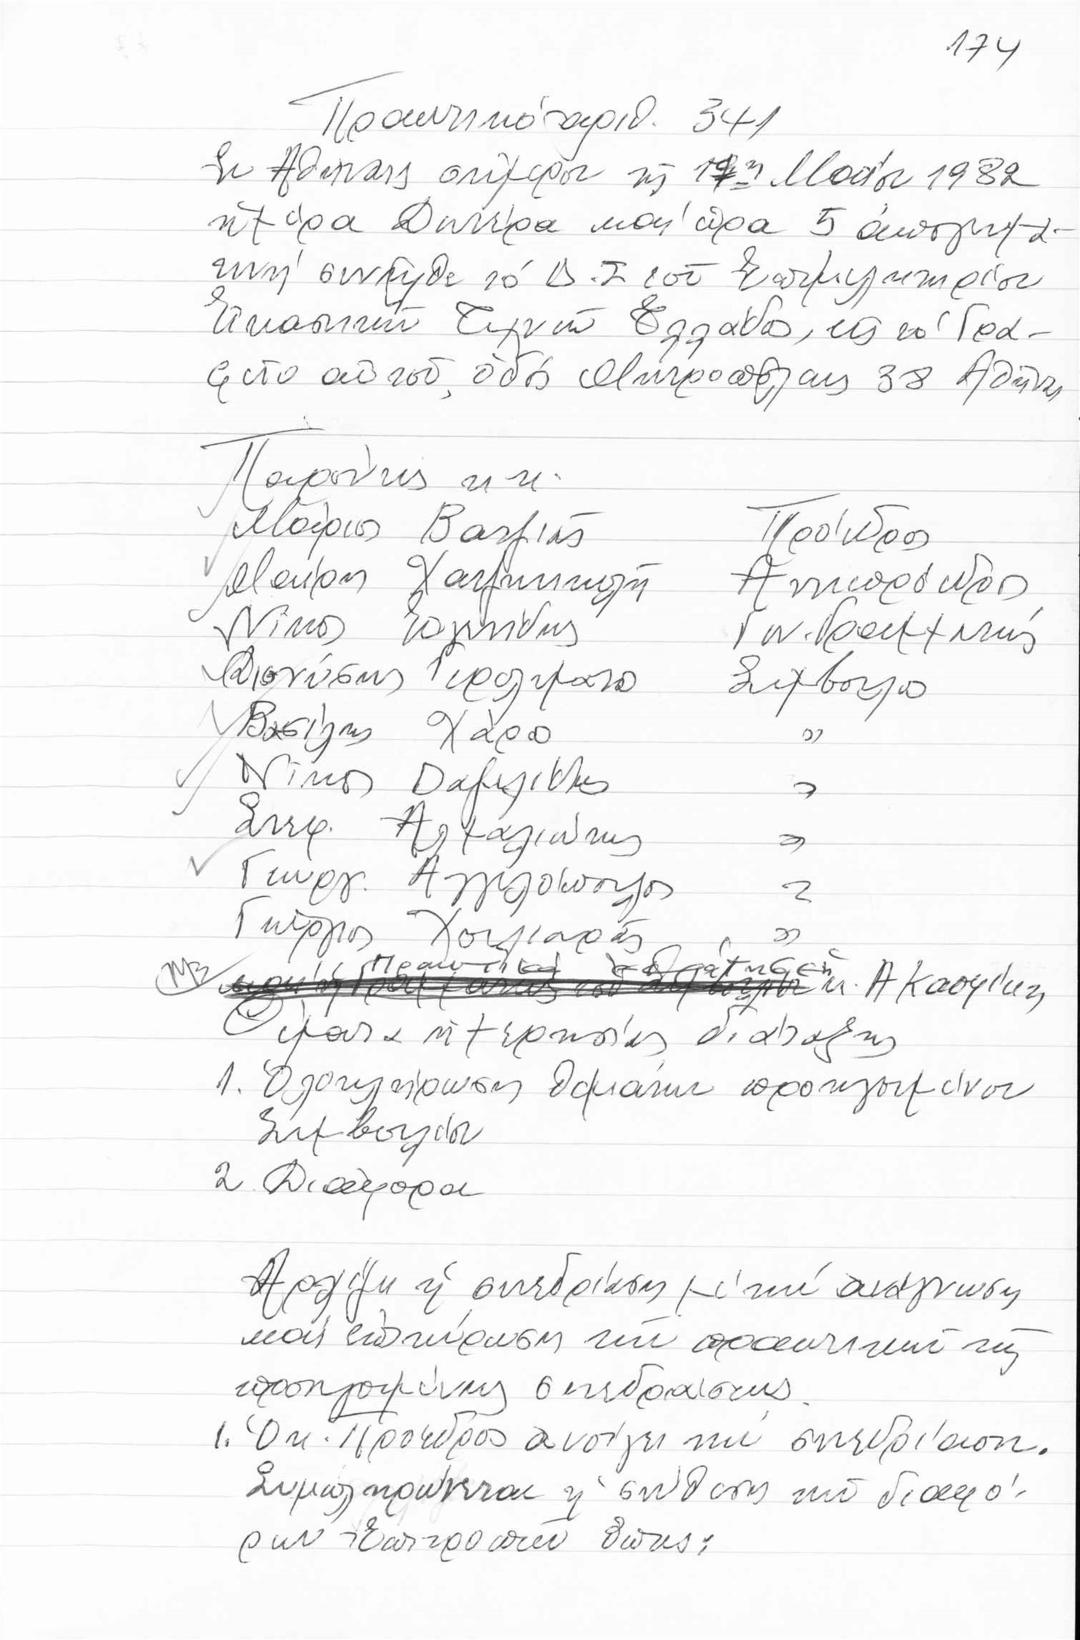 174
Πρακτικό υπ' αριθ. 341
Ἐν Ἀθήναις σήμερον τῆς 17η Μαΐου 1982
ἡμέρα Δευτέρα καί ὥρα 5 ἀπογευμα-
τινή συνῆλθε τό Δ.Σ τοῦ Ἐπιμελητηρίου
Εἰκαστικῶν Τεχνῶν Ἑλλάδος, εἰς τό Γρα-
φεῖο αὐτοῦ, ὁδός Μητροπόλεως 38 Ἀθῆνα
Παρόντες κ κ.
Μάριος Βατζιάς Πρόεδρος
Μακρης Χατζηκ Αντιπρόεδρος
Νίκος Ἰωαννίδης Γεν. Γραμματεύς
Διονύσης Γερολυμάτος Σύμβουλος
Βασίλης Χάρος "
Νίκος Δαμιλίδης "
Στεφ. Αλμαλιώτης "
Γεωργ. Αγγελόπουλος "
Γεώργιος Χουλιαράς "
Πρακτικά κράτησε ἡ κ. Α Κασφίκη
Θέματα ἡμερησίας διάταξης
1. Ὁλοκλήρωσης θεμάτων προηγουμένου
Συμβουλίου
2 Διάφορα
Αρχίζει ἡ συνεδρίαση μέ τήν ἀνάγνωση
καί ἐπικύρωση τῶν πρακτικῶν τῆς
προηγουμένης συνεδριάσεως.
1. Ὁ κ. Πρόεδρος ἀνοίγει τήν συνεδρίαση.
Συμπληρώνεται ἡ σύνθεση τῶν διαφό-
ρων Ἐπιτροπῶν ὅπως: